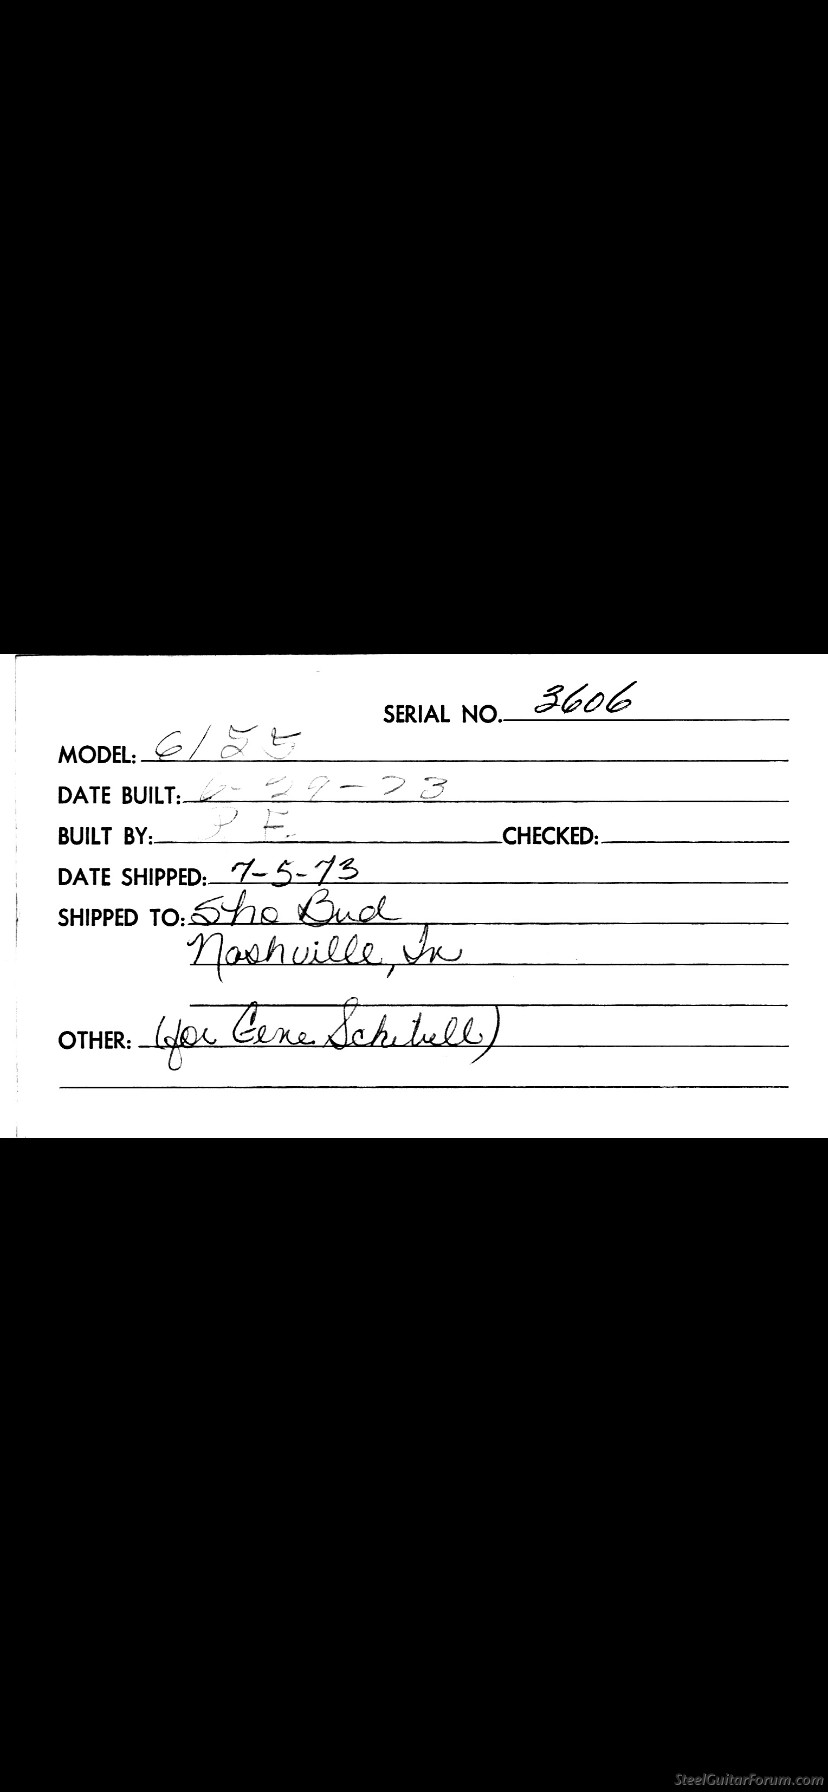 SERIAL NO. 3606
MODEL: 6155
DATE BUILT: 6-29-73
BUILT BY: P E. CHECKED:
DATE SHIPPED: 7-5-73
SHIPPED TO: Sho Bud
Nashville, Tn
OTHER: (for Gene
SteelGuitarForum.com